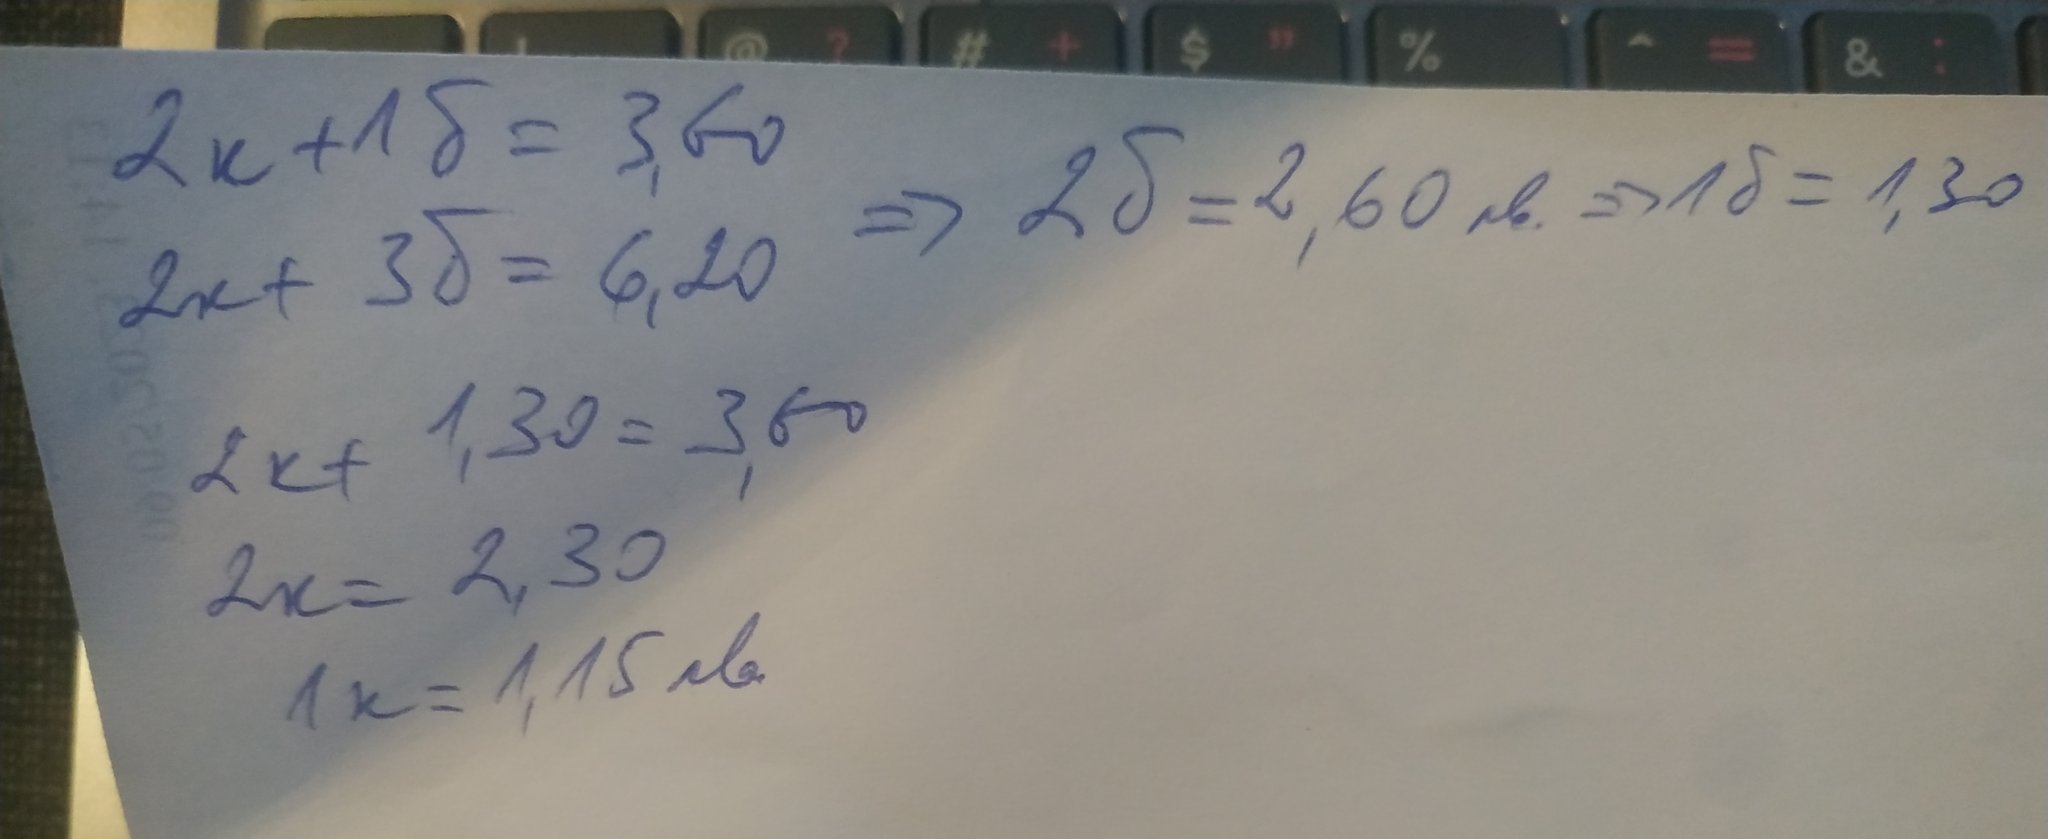 @ ? # + $ " % ^ = & :
2к+1б= 3,60
2к+ 3б= 6,20 => 2б=2,60 лв. => 1б= 1,30
2к+ 1,30= 3,60
2к= 2,30
1к= 1,15 лв.